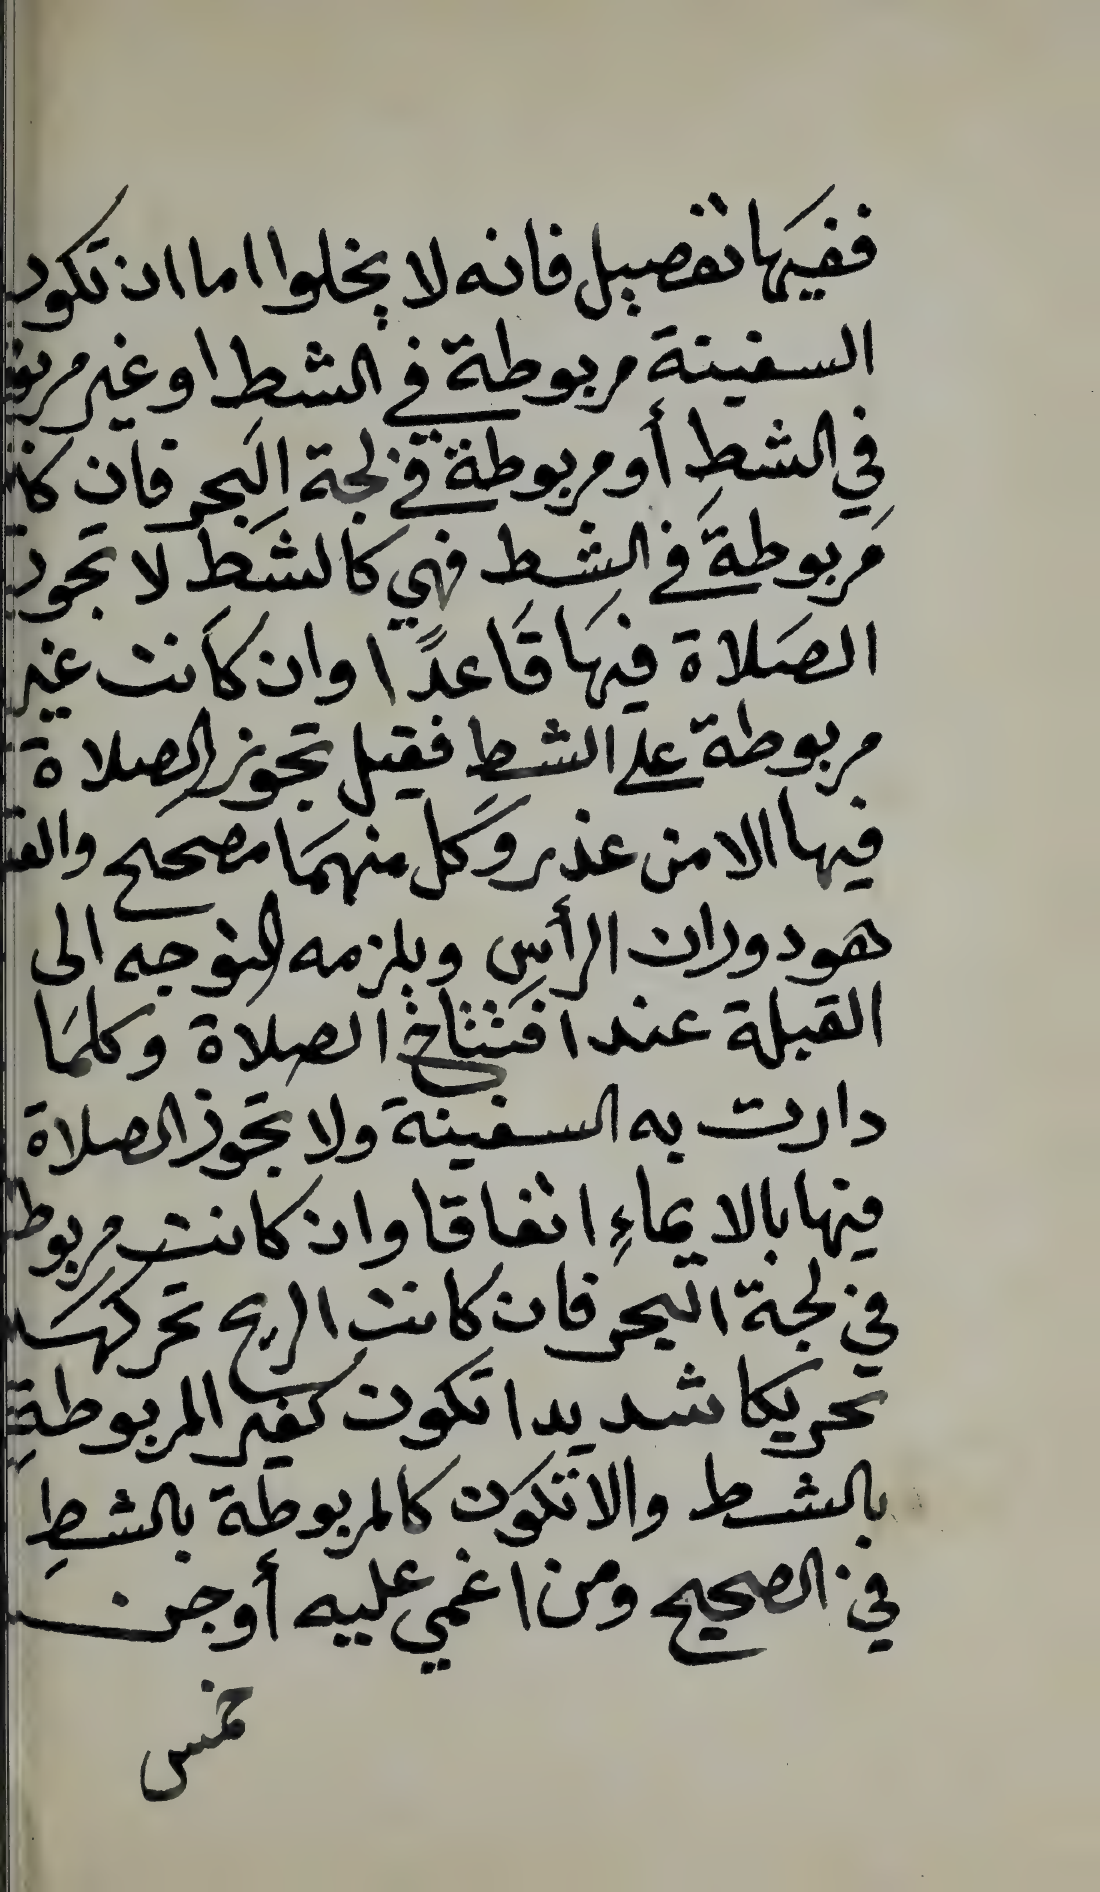 ففيها تفصيل فانه لا يخلوا اما ان تكون
السفينة مربوطة في الشط او غير
في الشط أو مربوطة في لجة البحر فان
مربوطة في الشط فهي كالشط لا تجوز
الصلاة فيها قاعدًا وان كانت غير
مربوطة على الشط فقيل تجوز الصلاة
فيها الا من عذر وكل منهما مصحح
هو دوران الرأس ويلزمه التوجه الى
القبلة عند افتتاح الصلاة وكلما
دارت به السفينة ولا تجوز الصلاة
فيها بالايماءِ اتفاقا وان كانت
في لجة البحر فان كانت الريح تحركها
تحريكا شديدا تكون كغير المربوطة
بالشط والا تكون كالمربوطة بالشط
في الصحيح ومن اغمي عليه أو جن
خمس